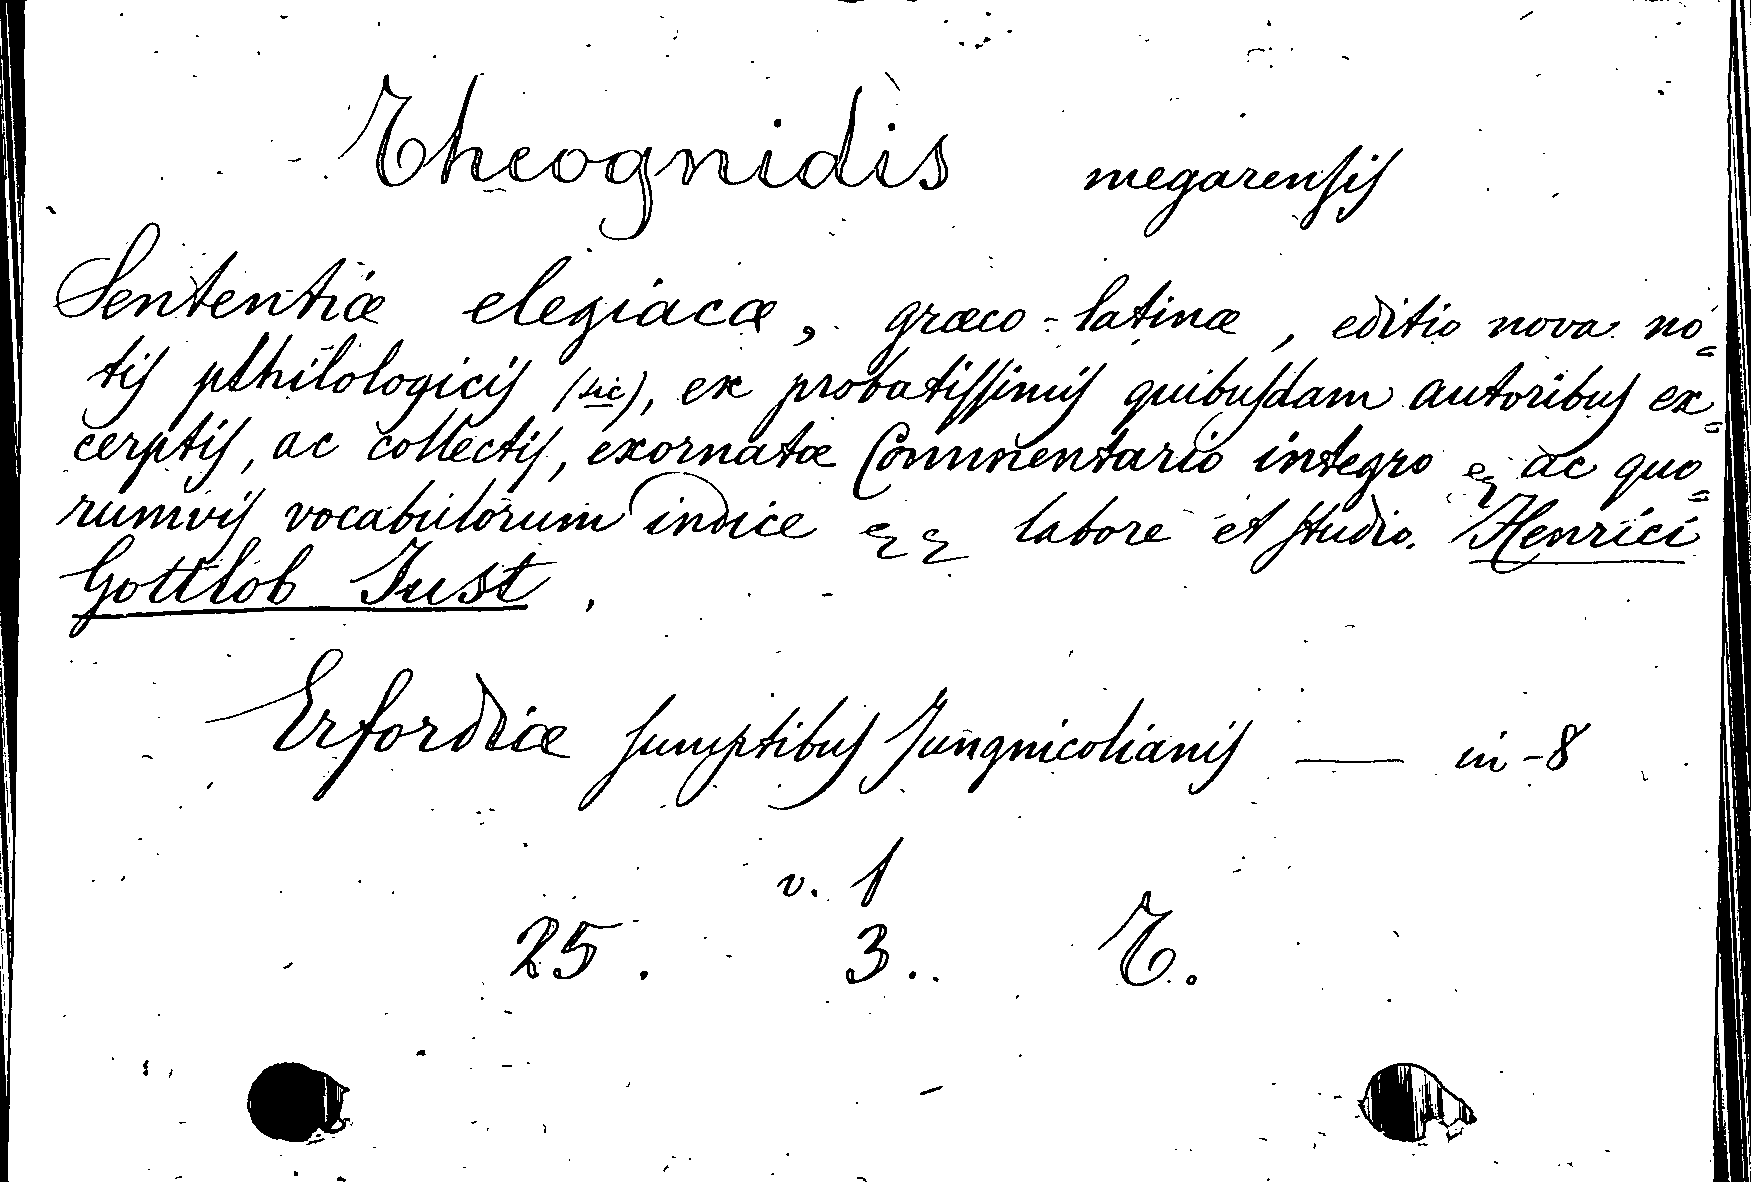 Theognidis megarensis
Sententiæ elegiacæ, græco-latinæ, editio nova no=
tis pthilologicis (sic), ex probatissimis quibusdam autoribus ex=
cerptis, ac collectis, exornatæ Commentario integro &, ac quo=
rumvis vocabulorum indice & & labore et studio. Henrici
Gottlob Just.
Erfordiæ sumptibus Jungnicolianis — in-8
v. 1
25. 3.. T.